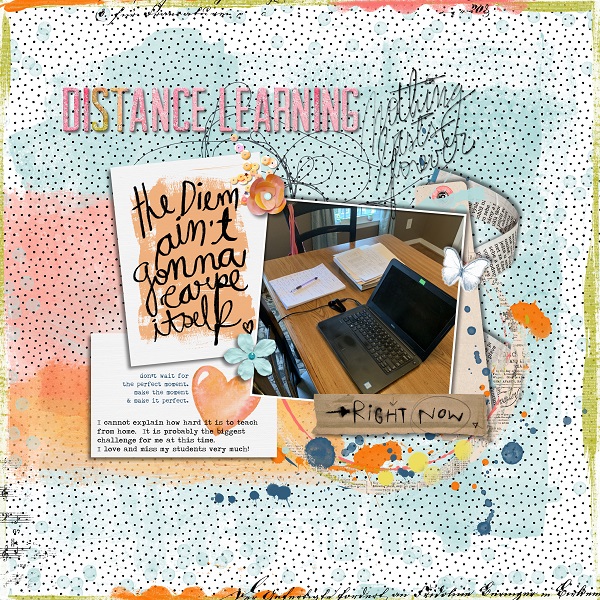 DISTANCE LEARNING
nothing
lasts
forever
the Diem
ain't
gonna
carpe
itself
don't wait for
the perfect moment.
make the moment
& make it perfect.
I cannot explain how hard it is to teach
from home. It is probably the biggest
challenge for me at this time.
I love and miss my students very much!
RIGHT NOW